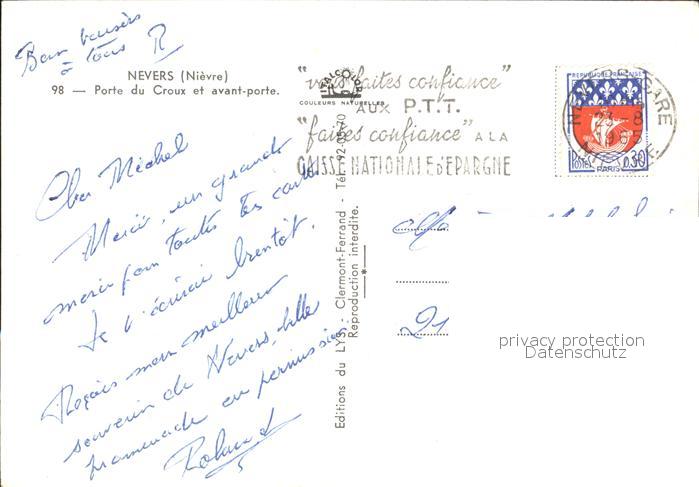 Bons baisers
à tous R
NEVERS (Nièvre)
98 — Porte du Croux et avant-porte.
ITALCOLOR
COULEURS NATURELLES
"vous faites confiance"
AUX P.T.T.
"faites confiance" A LA
CAISSE NATIONALE D'EPARGNE
NEVERS GARE
23 - 8
1965
NIEVRE
REPUBLIQUE FRANÇAISE
POSTES
0,30
PARIS
Cher Michel
Merci, un grand
merci pour toutes tes cartes
Je t'écrirai bientôt.
Reçois mon meilleur
souvenir de Nevers, belle
promenade en permission.
Roland
Editions du LYS - Clermont-Ferrand - Tél. 92-05-70
Reproduction interdite.
21
privacy protection
Datenschutz